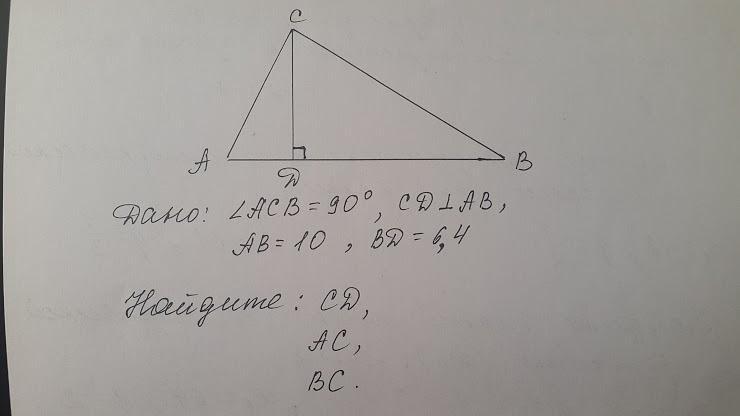 C
A
D
B
Дано: ∠ACB = 90°, CD ⊥ AB,
AB = 10 , BD = 6,4
Найдите: CD,
AC,
BC.